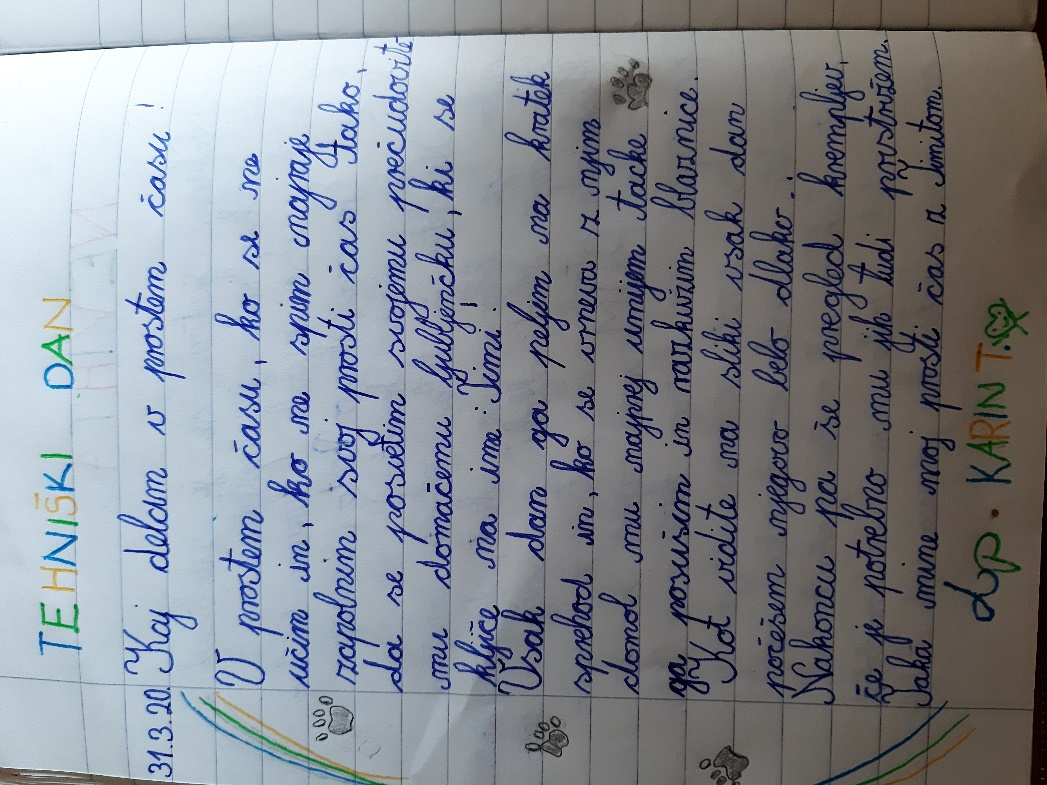 TEHNIŠKI DAN
31.3.20 Kaj delam v prostem času!
V prostem času, ko se ne
učim in, ko ne spim najraje
zapolnim svoj prosti čas tako,
da se posvetim svojemu prečudovite
mu domačemu ljubljenčku, ki se
kliče na ime Timi!
Vsak dan ga peljem na kratek
sprehod in, ko se vrneva z njim
domol mu najprej umijem tacke
ga posušim in razkužim blaznice.
Kot vidite na sliki vsak dan
počešem njegovo belo dlako.
Nakoncu pa še pregled krempljev,
če je potrebno mu jih tudi postrižem.
Taka mine moj prosti čas z Timitom.
Lp. KARIN T.